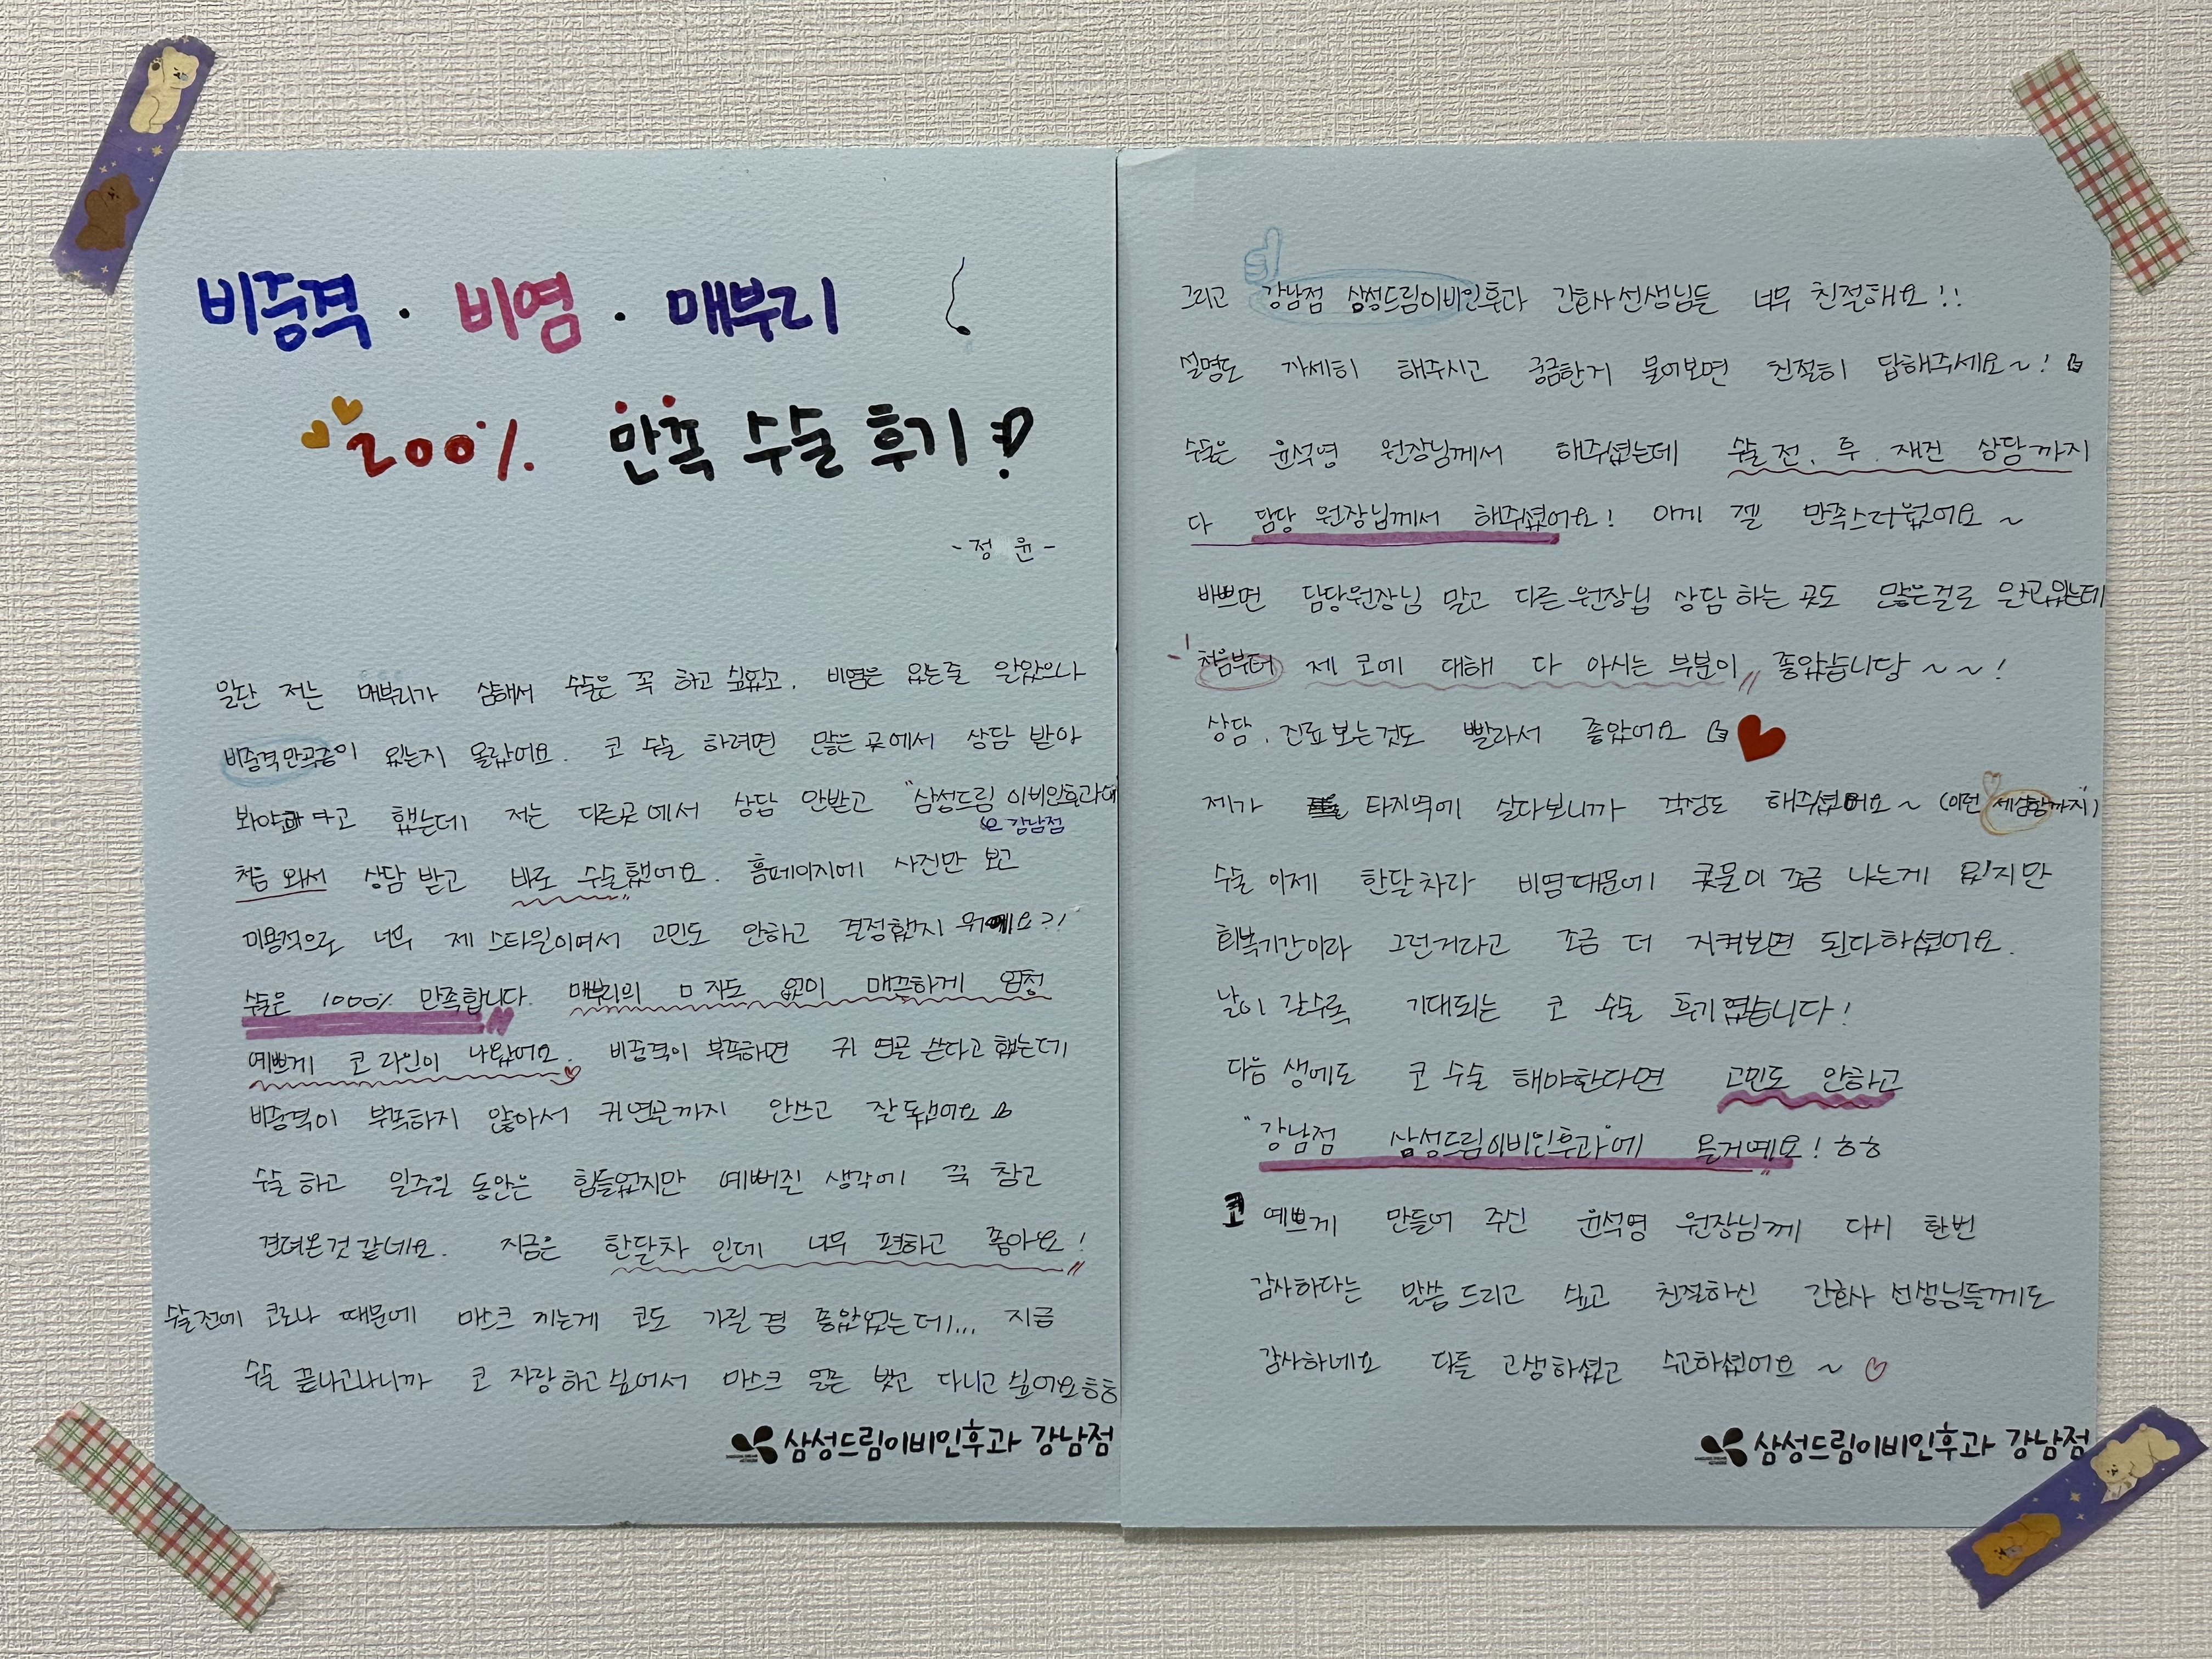 비중격 · 비염 · 매부리
200% 만족 수술 후기!?
- 정 윤 -
일단 저는 매부리가 심해서 수술은 꼭 하고 싶었고. 비염은 있는줄 알았으나
비중격만곡증이 있는지 몰랐어요. 코 수술 하려면 많은 곳에서 상담 받아
봐야 한다고 했는데 저는 다른곳에서 상담 안받고 "삼성드림 이비인후과에"
강남점
처음 와서 상담 받고 바로 수술했어요. 홈페이지에 사진만 보고
미용적으로 너무 제 스타일이여서 고민도 안하고 결정했지 뭐예요?!
수술은 1000% 만족합니다. 매부리의 ㅁ 자도 없이 매끈하게 엄청
예쁘게 코 라인이 나왔어요. 비중격이 부족하면 귀 연골 쓴다고 했는데
비중격이 부족하지 않아서 귀연골까지 안쓰고 잘 됐어요
수술 하고 일주일 동안은 힘들었지만 예뻐질 생각에 꾹 참고
견뎌온것 같네요. 지금은 한달차 인데 너무 편하고 좋아요!
수술전에 코로나 때문에 마스크 끼는게 코도 가릴 겸 좋았었는데... 지금
수술 끝나고나니까 코 자랑하고싶어서 마스크 얼른 벗고 다니고 싶어요ㅎㅎ
삼성드림이비인후과 강남점
그리고 강남점 삼성드림이비인후과 간호사선생님들 너무 친절해요!!
설명도 자세히 해주시고 궁금한거 물어보면 친절히 답해주세요~!
수술은 윤석영 원장님께서 해주셨는데 수술 전, 후. 재진 상담까지
다 담당 원장님께서 해주셨어요! 이게 젤 만족스러웠어요~
바쁘면 담당원장님 말고 다른원장님 상담 하는 곳도 많은걸로 알고있는데
처음부터 제 코에 대해 다 아시는 부분이 좋았습니당~~!
상담. 진료 보는것도 빨라서 좋았어요
제가 타지역에 살다보니까 걱정도 해주셨어요~ (이런 세심함까지)
수술 이제 한달차라 비염때문에 콧물이 조금 나는게 있지만
회복기간이라 그런거라고 조금 더 지켜보면 된다하셨어요.
날이 갈수록 기대되는 코 수술 후기였습니다!
다음 생에도 코 수술 해야한다면 고민도 안하고
"강남점 삼성드림이비인후과"에 올거예요! ㅎㅎ
코 예쁘게 만들어 주신 윤석영 원장님께 다시 한번
감사하다는 말씀 드리고 싶고 친절하신 간호사 선생님들께도
감사하네요 다들 고생하셨고 수고하셨어요~
삼성드림이비인후과 강남점